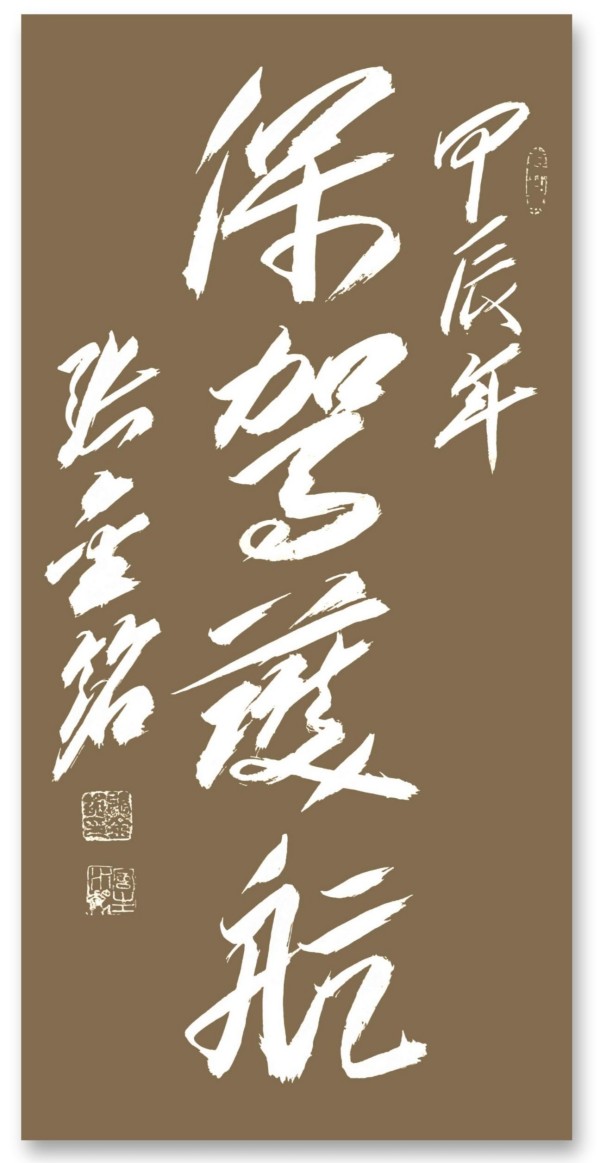 甲辰年
保驾护航
张金铭